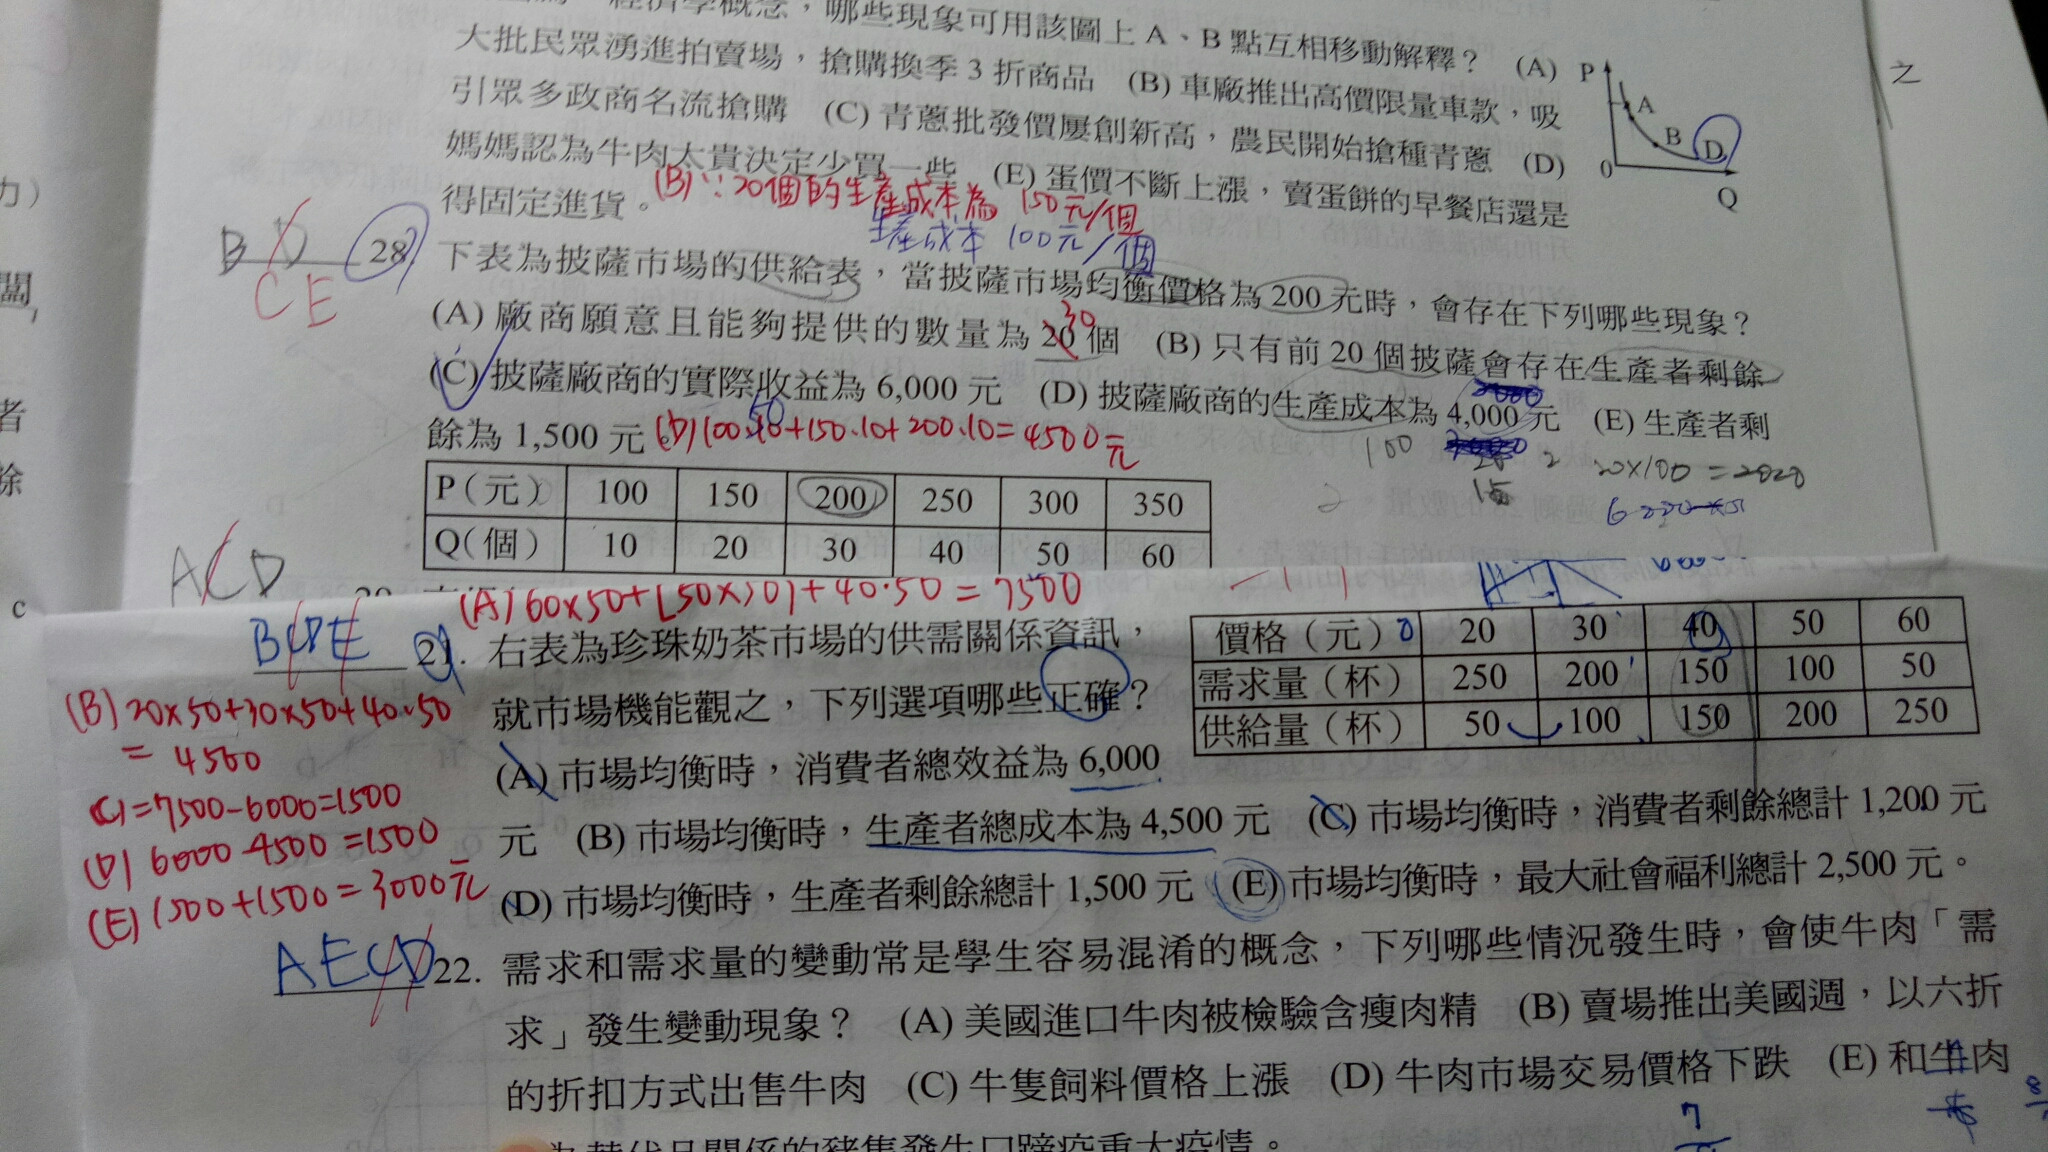 經濟學概念，哪些現象可用該圖上 A、B 點互相移動解釋？ (A)
大批民眾湧進拍賣場，搶購換季 3 折商品 (B) 車廠推出高價限量車款，吸
引眾多政商名流搶購 (C) 青蔥批發價屢創新高，農民開始搶種青蔥 (D)
媽媽認為牛肉太貴決定少買一些 (E) 蛋價不斷上漲，賣蛋餅的早餐店還是
得固定進貨。
P
A
B
D
0
Q
之
(B)∵20個的生產成本為 150元/個
生產成本 100元/個
B D 28.
CE
下表為披薩市場的供給表，當披薩市場均衡價格為 200 元時，會存在下列哪些現象？
30
(A) 廠商願意且能夠提供的數量為 20 個 (B) 只有前 20 個披薩會存在生產者剩餘
(C) 披薩廠商的實際收益為 6,000 元 (D) 披薩廠商的生產成本為 4,000 元 (E) 生產者剩
餘為 1,500 元
(D) 100·10+150·10+200·10=4500元
50
100
2
20×100=2000
15
P(元) 100 150 200 250 300 350
Q(個) 10 20 30 40 50 60
力）
闆，
者
餘
c
ACD
(A) 60×50+(50×50)+40·50=7500
BCDE 21. 右表為珍珠奶茶市場的供需關係資訊，
就市場機能觀之，下列選項哪些正確？
價格（元） 0 20 30 40 50 60
需求量（杯） 250 200 150 100 50
供給量（杯） 50 100 150 200 250
(A) 市場均衡時，消費者總效益為 6,000
元 (B) 市場均衡時，生產者總成本為 4,500 元 (C) 市場均衡時，消費者剩餘總計 1,200 元
(D) 市場均衡時，生產者剩餘總計 1,500 元 (E) 市場均衡時，最大社會福利總計 2,500 元。
(B) 20×50+30×50+40·50
= 4500
(C)=7500-6000=1500
(D) 6000-4500=1500
(E) 1500+1500=3000元
AECD 22. 需求和需求量的變動常是學生容易混淆的概念，下列哪些情況發生時，會使牛肉「需
求」發生變動現象？ (A) 美國進口牛肉被檢驗含瘦肉精 (B) 賣場推出美國週，以六折
的折扣方式出售牛肉 (C) 牛隻飼料價格上漲 (D) 牛肉市場交易價格下跌 (E) 和牛肉
為替代品關係的豬隻發生口蹄疫重大疫情。
7
8